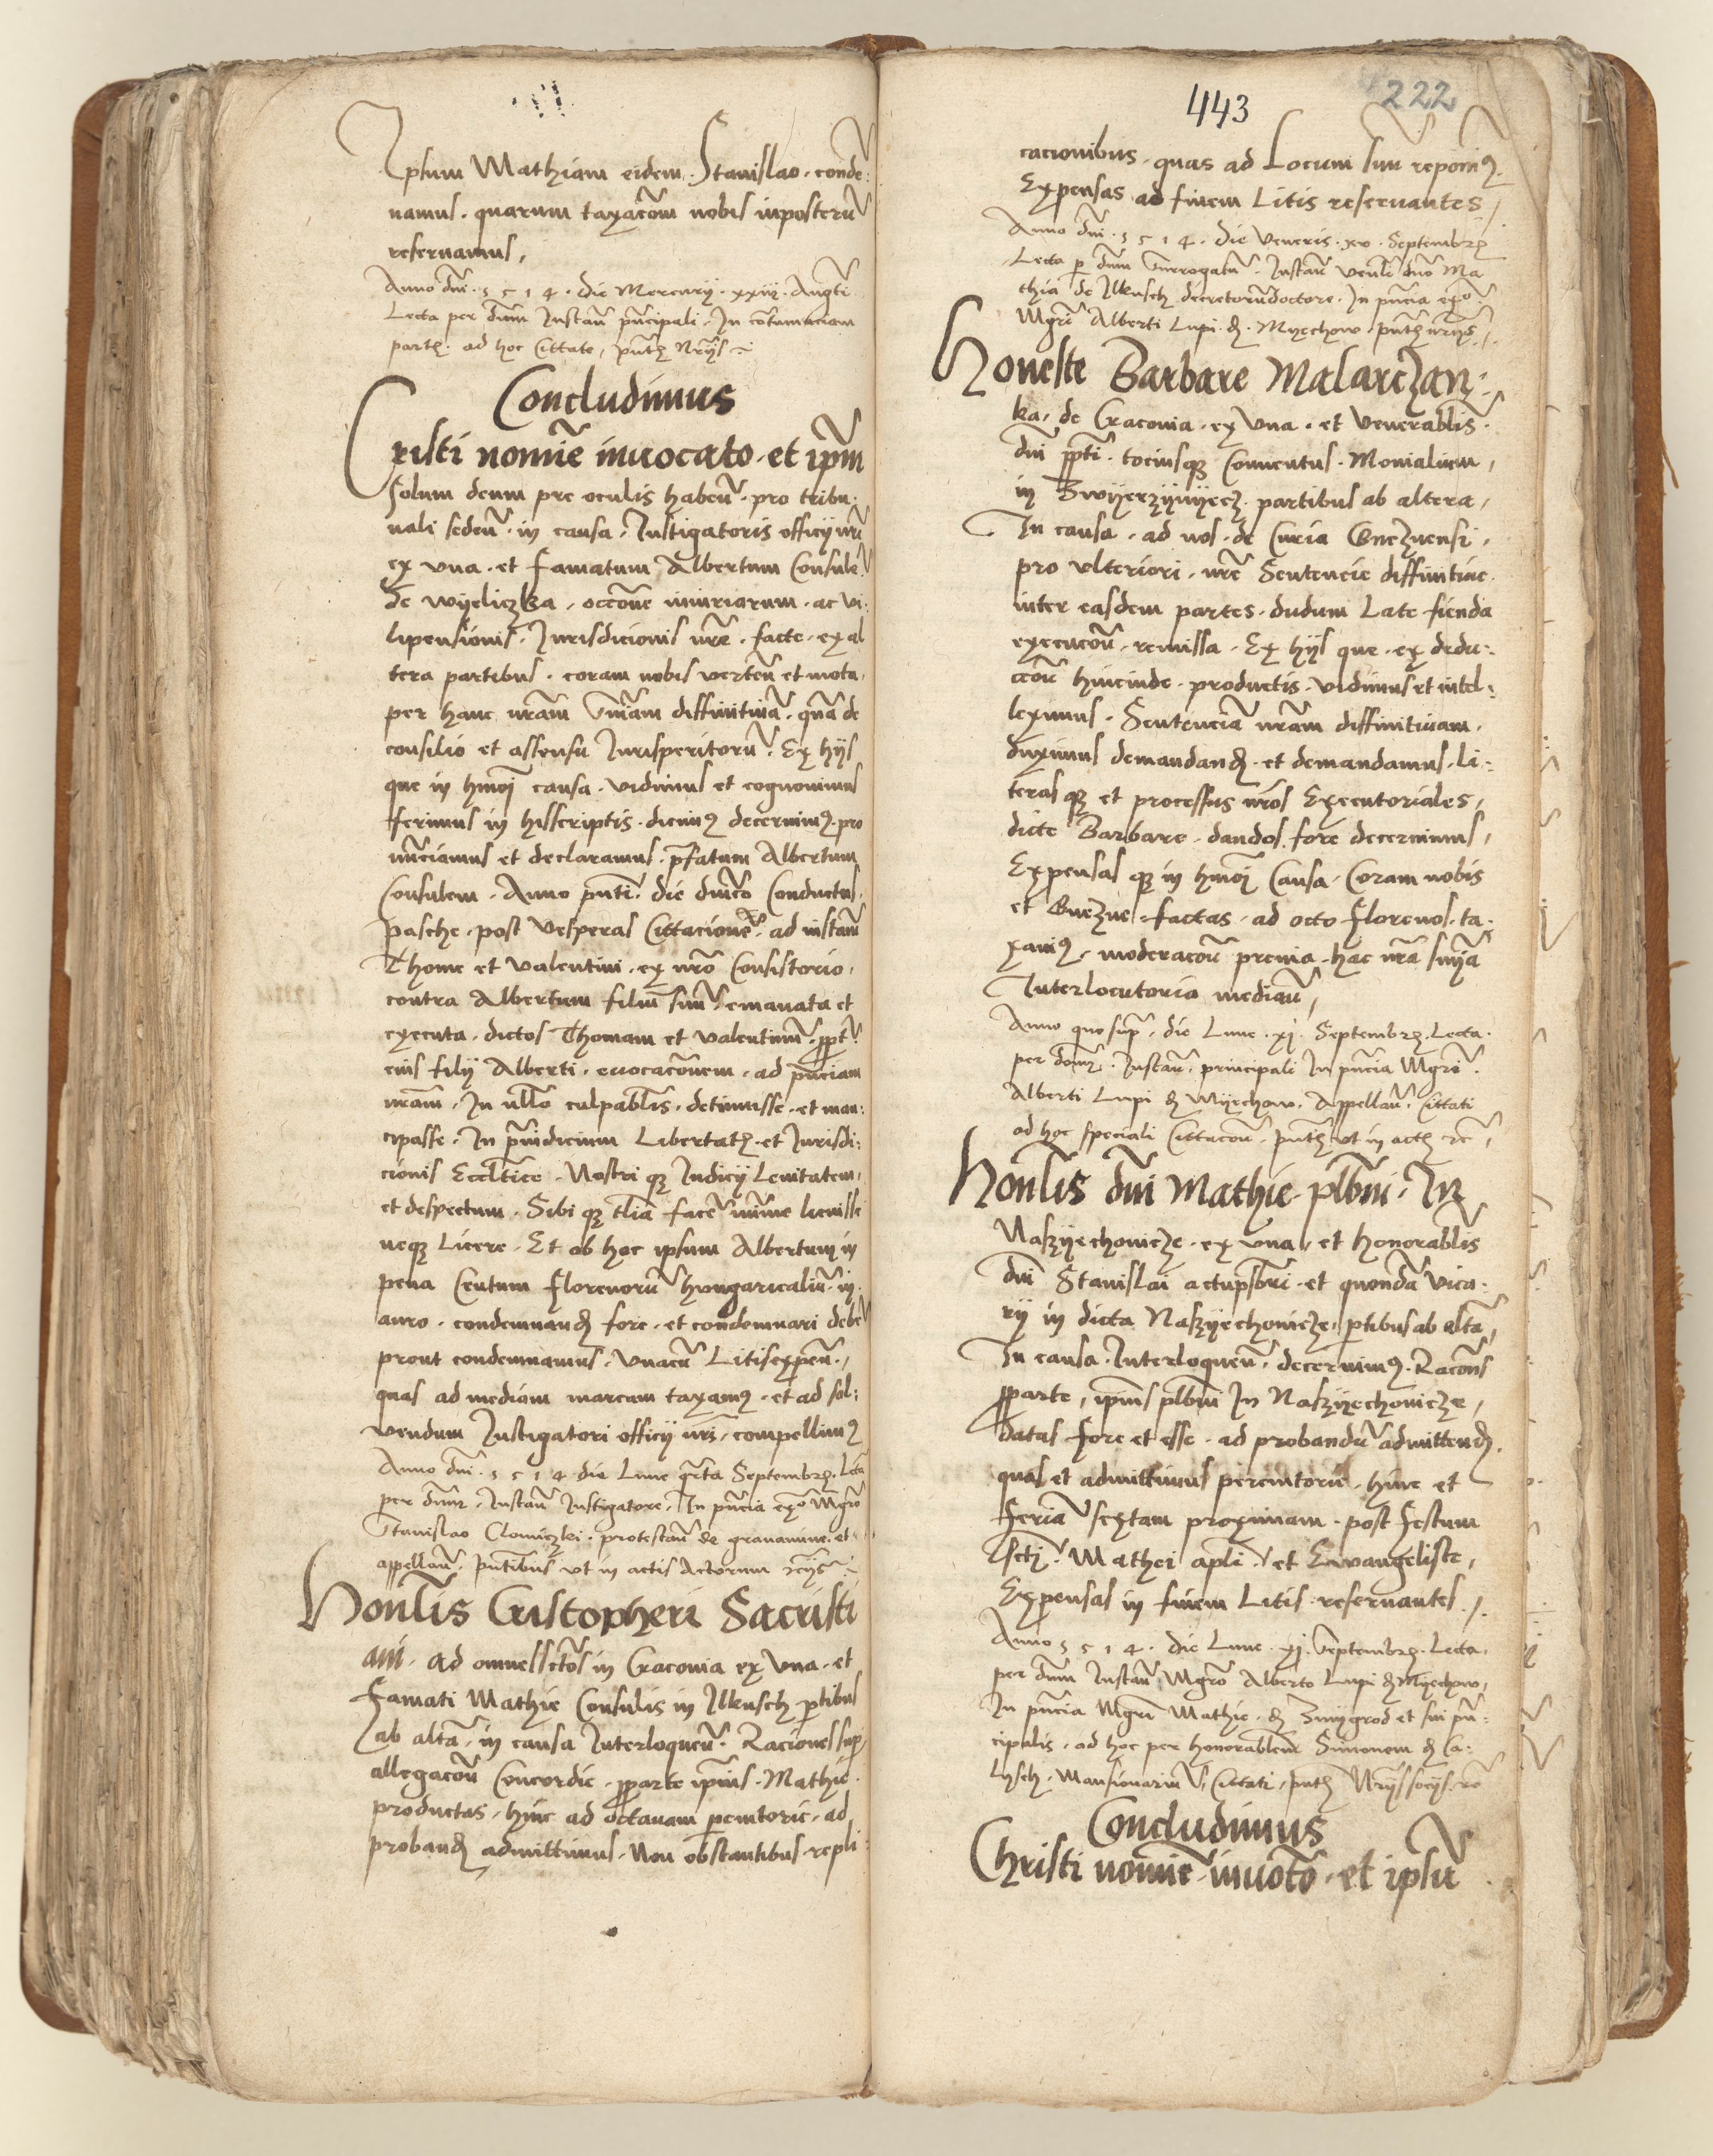 Ipsum Mathiam eidem · Stanislao · conde:
namus · quarum taxacoem nobis inposteru
reservamus,
Anno dni · 1514 · die Mercurij · xxiij · Augti
Lecta per dnm Instan pncipali · In cotumaciam
part · ad hoc Cittate, pntz Nrijs
Concludimus
Cristi nomie invocato · et ipm
solum deum pre oculis haben · pro tribu:
nali seden · in causa · Instigatoris officij nri
ex una · et famatum Albertum Consule
de wyeliczka, occone iniuriarum · ac vi:
lipensionis · Jurisdicionis nre · facte · ex al
tera partibus · coram nobis verten et mota,
per hanc nram sniam diffinitiva · qua de
consilio et assensu Jurisperitoru · Ex hijs
que in hmoi causa · vidimus et cognovimus
fferimus in hisscriptis · dicim9 decernim9 · pro
nunciamus et declaramus · pfatum Albertum
Consulem · Anno pnti · die dnico Conductus
pasche · post vesperas Cittacione · ad instan
Thome et Valentini · ex nro Consistorio,
contra Albertum filiu suu emanata et
executa · dictos Thomam et Valentinu · ppt
eius filij Alberti · evocacionem · ad pnciam
nram · In nllo culpabls · detinuisse · et man:
cipasse · In pniudicium Libertatz · et Jurisdi:
cionis Ecclice · Nostri qz Judicij Levitatem,
et despectum · Sibi qz tlia face nime licuisse
neqz Licere · Et ob hoc ipsum Albertum in
pena Centum florenoru hungaricaliu in
auro · condemnand fore · et condemnari debe
prout condemnamus · unacu Litisexpen ·,
quas ad mediam marcam taxam9 · et ad sol:
vendum Instigatori officij nri, compellim9
Anno dni · 1514 die Lune qrta Septembrz · Lcta
per dnm, Instan Instigatore, In pncia exo Mgro
Stanislao Clomiczki · protestan de gravamine · et
appellan · pntibus ut in actis Actorum
Honlis Cristopheri Sacristi
ani · ad omnessctos in Cracovia ex una · et
famati Mathie Consulis in Ilkusch ptibus
ab alta, in causa Interloquen · Racionessup
allegacon Concordie · pparte ipsius · Mathie
productas, hinc ad octavam pemtorie · ad
proband admittimus · Non obstantibus · repli
443
222
cacionibus · quas ad Locum suu reponim9 ·
Expensas ad finem Litis reservantes,
Anno dni · 1514 · die Veneris · xv · Septembrz
Lecta p dnm Surrogatu · Instan venli dno Ma
thia de Ilkusch decretorudoctore · In pncia exo
Mgri Alberti Lupi · d · Myechow pntz nrijs,
Honeste Barbare Malarczan:
ka, de Cracovia · ex una · et Venerablis ·
dni ppti · tociusqz Conventus · Monialium,
in Swyerzynyecz · partibus ab altera,
In causa · ad nos · de Curia Gneznensi,
pro ulteriori · nre Sentencie diffinitive
inter easdem partes · dudum Late fienda
execucon · remissa · Ex hijs que · ex dedu:
ccon hincinde · productis · vidimus et intel:
leximus · Sentencia nram diffinitivam ·
duximus demandand · et demandamus · Li:
teras qz et processus nros Executoriales,
dicte Barbare · dandos fore decernimus,
Expensas qz in hmoi Causa · Coram nobis
et Gnezne · factas · ad octo florenos · ta:
xavim9, moderacon previa · hac nra snia
Interlocutoria median,
Anno quo sup, die Lune · xj · Septembrz · Lecta ·
per dnm · Instan · principali In pncia Mgri ·
Alberti Lupi d Myechow · Appellan · Cittati
ad hoc speciali Cittacon, pntz ut in actz
Honlis dni Mathie · plbni · In
Naszyechowicze · ex una, et honorablis
dni Stanislai actupsbri · et quonda vica:
rij in dicta Naszyechowicze, ptibus ab alta,
In causa · Interloquen, decernim9 · Racons
pparte, ipius plbni In Naszyechowicze,
datas fore et esse · ad probandu admittend ·
quas et admittimus peremtorie · hinc et
feria sextam proximam · post festum
Scti · Mathei apli · et Ewangeliste,
Expensas in finem Litis reservantes,
Anno 1514 · die Lune · xj · Septembrz · Lecta,
per dnm Instan Mgro Alberto Lupi d Myechow,
In pncia Mgri Mathie · d Smygrod et sui pn:
cipalis · ad hoc per honorablem Simonem d Ca:
lysch · Mansionariu Cittati, pntz Nrijs socijs
Concludimus
Christi nomie invoto · et ipsu